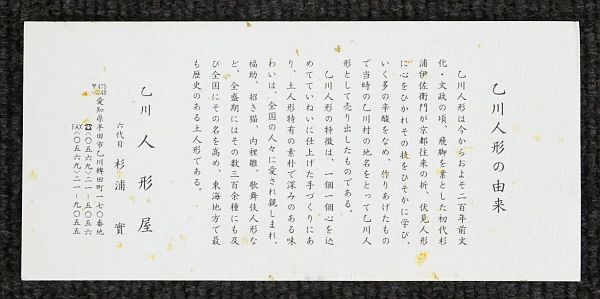 乙川人形の由来
乙川人形は今からおよそ二百年前文
化・文政の頃、飛脚を業とした初代杉
浦伊佐衛門が京都往来の折、伏見人形
に心をひかれその技をひそかに学び、
いく多の辛酸をなめ、作りあげたもの
で当時の乙川村の地名をとって乙川人
形として売り出したものである。
乙川人形の特徴は、一個一個心を込
めてていねいに仕上げた手づくりにあ
り、土人形特有の素朴で深みのある味
わいは、全国の人々に愛され親しまれ、
福助、招き猫、内裡雛、歌舞伎人形な
ど、全盛期にはその数三百余種にも及
び全国にその名を高め、東海地方で最
も歴史のある土人形である。
乙川人形屋
六代目 杉浦實
〒475 愛知県半田市乙川稗田町一七〇番地
☎(〇五六九)二一-五〇五六
FAX(〇五六九)二一-九〇五五